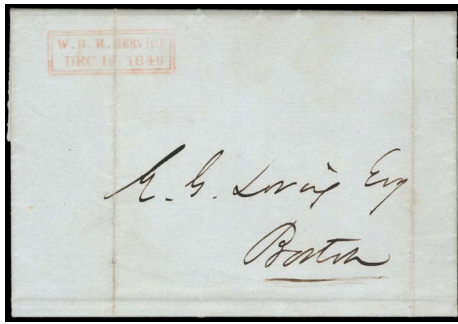 W. R. R. SERVICE
DEC 12 1849
G. Loring Esq
Boston